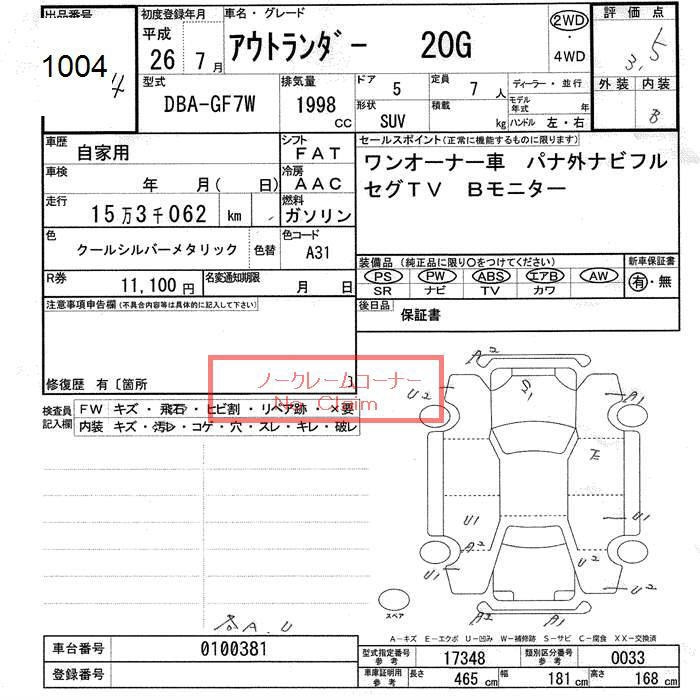 出品番号 初度登録年月 車名・グレード 評価点
1004 4 平成 26 7月 アウトランダー 20G 2WD ・ 4WD 3.5
型式 DBA-GF7W 排気量 1998 CC ドア 5 定員 7 人 ディーラー・並行 外装 内装
形状 SUV 積載 kg モデル年式 年 ハンドル 左・右 B
車歴 自家用 シフト FAT セールスポイント(正常に機能するものに限ります)
車検 年 月( 日) 冷房 AAC ワンオーナー車 パナ外ナビフル
走行 15万3千062 km 燃料 ガソリン セグTV Bモニター
色 クールシルバーメタリック 色替 色コード A31
装備品(純正品に限り○をつけてください) 新車保証書
R券 11,100円 名変通知期限 月 日 PS PW ABS エアB AW 有・無
SR ナビ TV カワ
注意事項申告欄(不具合内容等は具体的に記入して下さい) 後日品 保証書
修復歴 有〔箇所 〕
ノークレームコーナー
No Claim
検査員記入欄 FW キズ・飛石・ヒビ割・リペア跡・×要
内装 キズ・汚レ・コゲ・穴・スレ・キレ・破レ
A2
U2 S1 A1
U1 U1
A2 U2
U1 U2
スペア A2 A1
A.U
A−キズ E−エクボ U−凹み W−補修跡 S−サビ C−腐食 XX−交換済
車台番号 0100381 型式指定番号 参考 17348 類別区分番号 参考 0033
登録番号 車庫証明用 参考 長さ 465 cm 幅 181 cm 高さ 168 cm